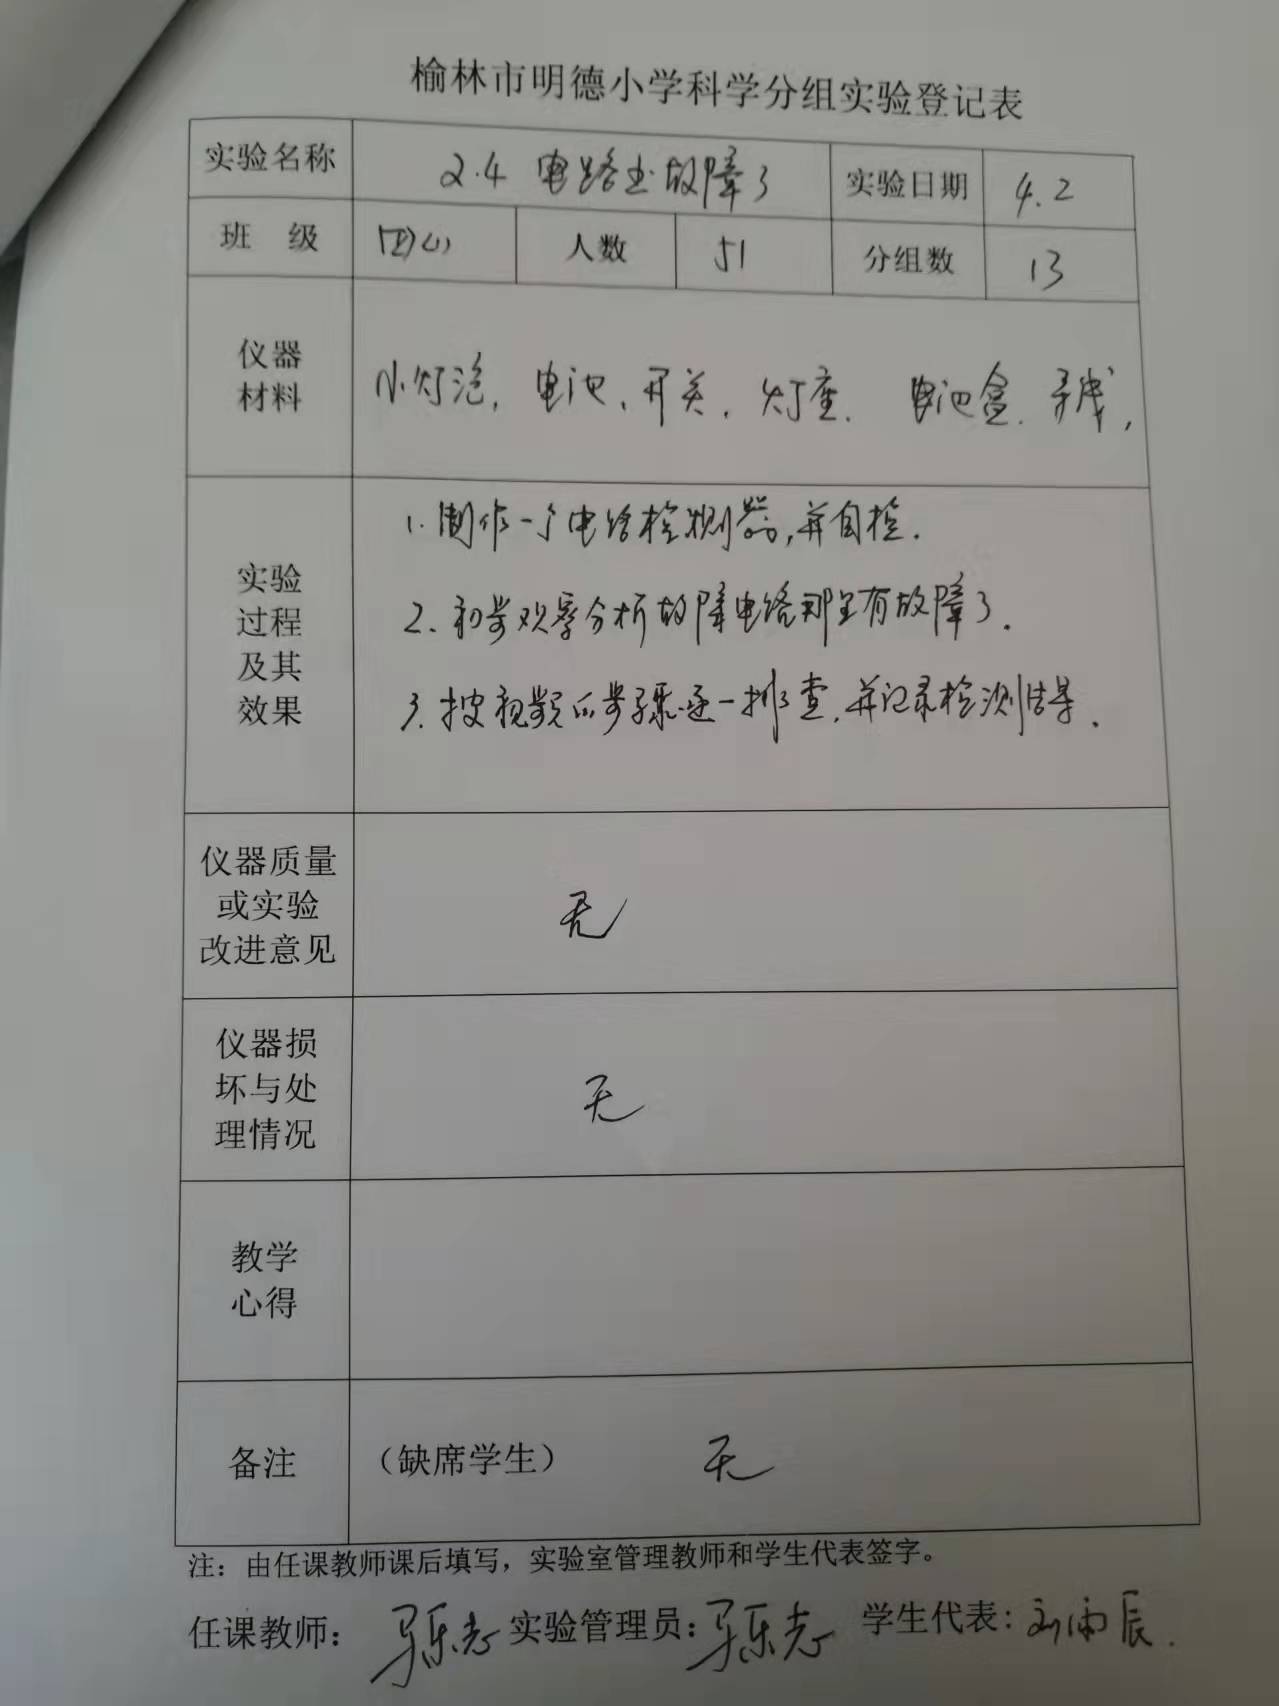 榆林市明德小学科学分组实验登记表
实验名称 2.4 电路出故障了 实验日期 4.2
班 级 四(1) 人数 51 分组数 13
仪器
材料
小灯泡, 电池, 开关, 灯座. 电池盒. 导线,
实验
过程
及其
效果
1. 制作一个电路检测器, 并自检.
2. 初步观察分析故障电路哪里有故障了.
3. 按视频的步骤逐一排查, 并记录检测结果.
仪器质量
或实验
改进意见
无
仪器损
坏与处
理情况
无
教学
心得
备注 （缺席学生） 无
注：由任课教师课后填写，实验室管理教师和学生代表签字。
任课教师： 马乐志 实验管理员：马乐志 学生代表：刘雨辰.